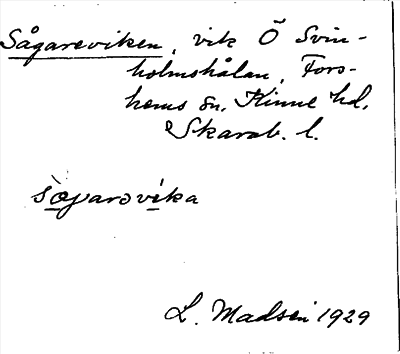 Sågareviken, vik Ö Svin-
holmshålan, Fors-
hems sn. Kinne hd.
Skarab. l.
sågarəvika
L. Madsen 1929